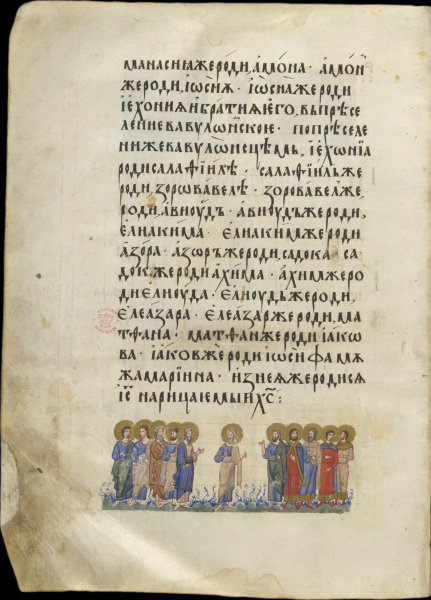 манасиꙗжероди, амона · амѡн
жероди, іѡсиꙗ · іѡсиꙗжероди
іехониꙗибратиꙗѥго, въпрѣсе
лениевавѵлѡнскоѥ · попрѣселе
нижевавѵлѡнсцѣмь, іехѡніа
родисалаѳіилѣ · салаѳіильже
роди, зоровавелѣ · зоровавелже,
роди, авиоудъ · авиоудъжероди,
елиакима · елиакимжероди
азѡра · азѡръжероди, садока · са
док,жеродиахима · ахимжеро
диелиоуда · елиоудьжероди,
елеазара · елеазаржероди, ма
тѳана · матѳанжероди іакѡ
ва · іаковжероди іѡсифа мѫ
жамариина · изнеѧжеродисѧ
іс҃ нарицаемыи х҃с :